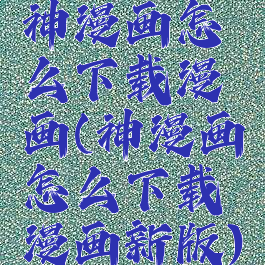 神漫画怎
么下载漫
画(神漫画
怎么下载
漫画新版)